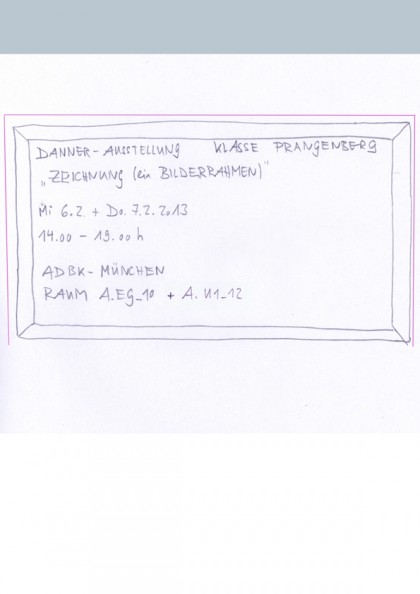 DANNER-AUSSTELLUNG KLASSE PRANGENBERG
„ZEICHNUNG (ein BILDERRAHMEN)"
Mi 6.2. + Do. 7.2.2013
14.00 - 19.00 h
ADBK-MÜNCHEN
RAUM A.EG_10 + A.U1_12